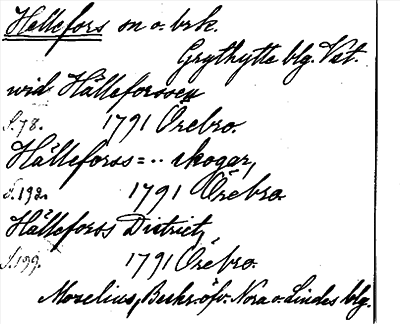 Hellefors sn o. brk.
Grythytte blg. Vst.
wid Hälleforssen
S. 78. 1791 Örebro.
Hälleforss=.. skogar,
S. 192. 1791 Örebro.
Hälleforss District,
S. 199. 1791 Örebro.
Mozelius, Beskr. öfv. Nora o. Lindes blg.